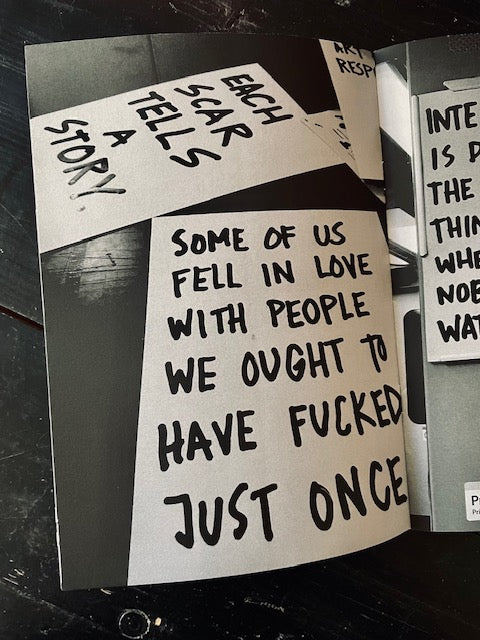 EACH
SCAR
TELLS
A
STORY.
SOME OF US
FELL IN LOVE
WITH PEOPLE
WE OUGHT TO
HAVE FUCKED
JUST ONCE
ART
RESP
INTE
IS P
THE
THIN
WHE
NOB
WAT